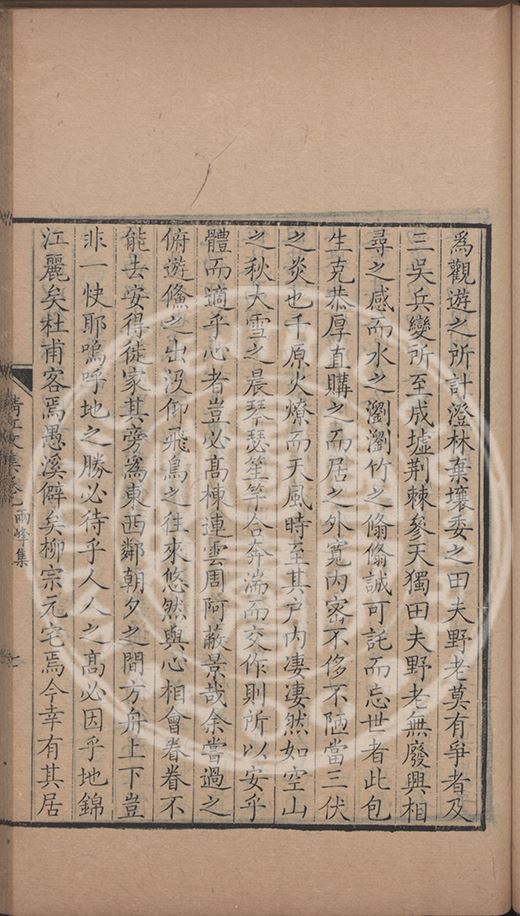 爲觀遊之所計澄林棄壤委之田夫野老莫有爭者及
三吳兵變所至成墟荆棘參天獨田夫野老無廢興相
尋之感而水之瀏瀏竹之翛翛誠可託而忘世者此包
生克恭厚直購之而居之外寬内密不侈不陋當三伏
之炎也千原火燎而天風時至其户内凄凄然如空山
之秋大雪之晨琴瑟笙竽合奔湍而交作則所以安乎
體而適乎心者豈必髙棟連雲周阿蔽景哉余嘗過之
俯遊鯈之出没仰飛鳥之往來悠然與心相會眷眷不
能去安得徙家其旁爲東西鄰朝夕之間方舟上下豈
非一快耶嗚呼地之勝必待乎人人之髙必因乎地錦
江麗矣杜甫客焉愚溪僻矣柳宗元宅焉今幸有其居
清江文集卷
兩峰集